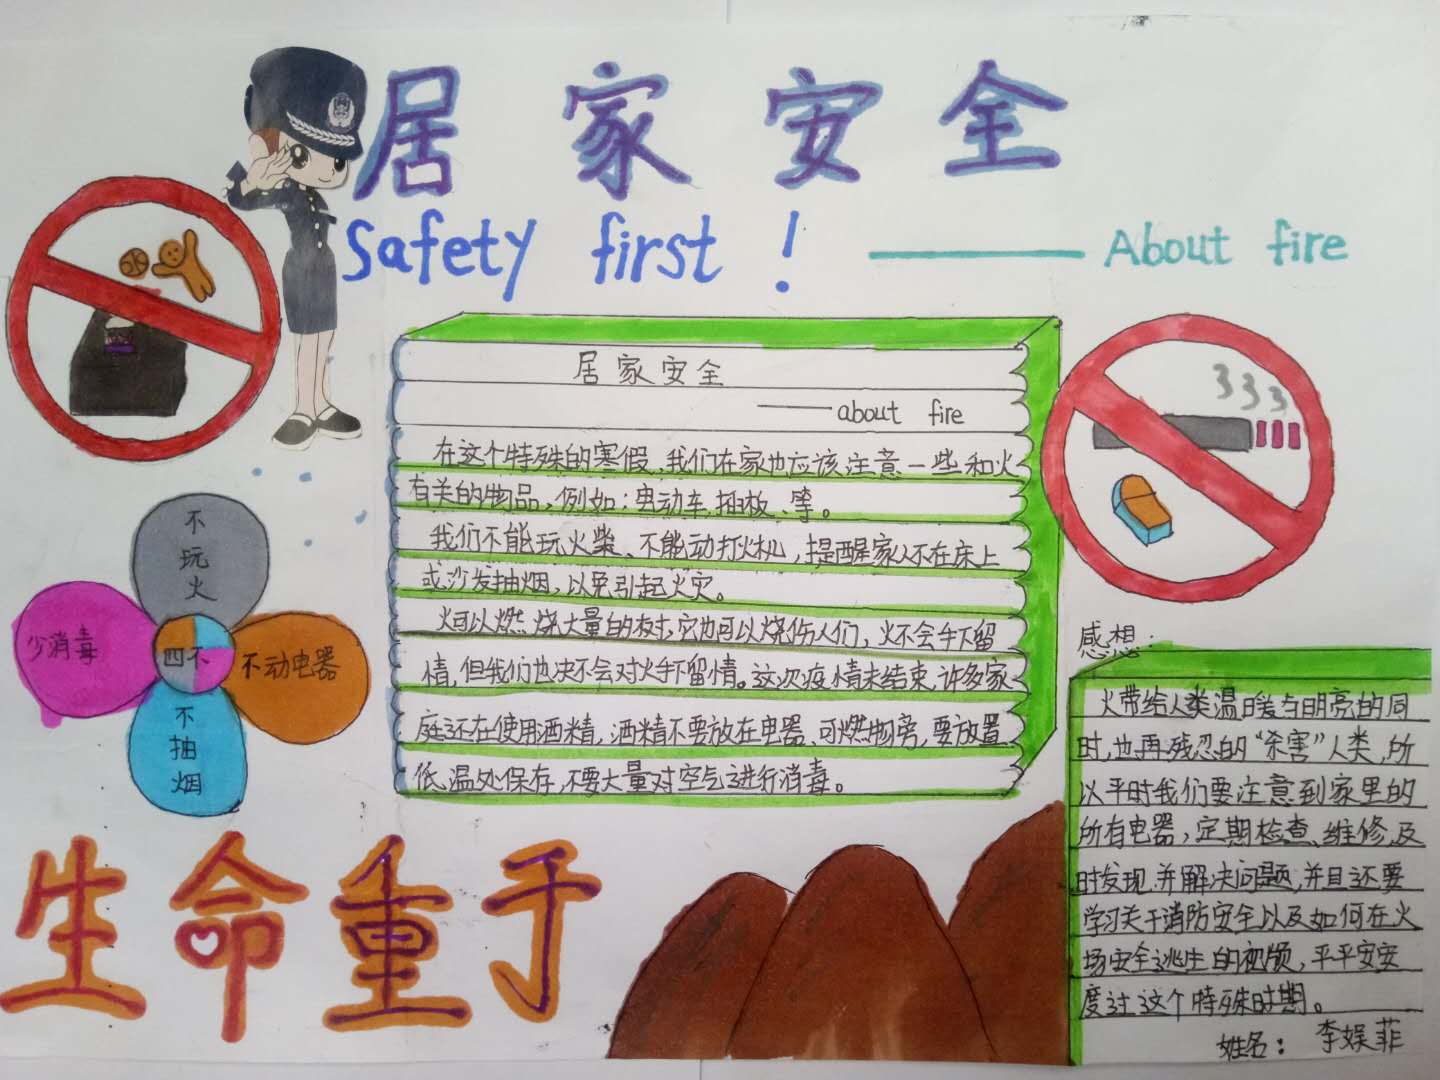 居家安全
Safety first! ——— About fire
居家安全
——about fire
在这个特殊的寒假,我们在家也应该注意一些和火
有关的物品、例如:电动车、插板、等。
我们不能玩火柴、不能动打火机,提醒家人不在床上
或沙发抽烟,以免引起火灾。
火可以燃烧大量的树,它也可以烧伤人们,火不会手下留
情,但我们也决不会对火手下留情。这次疫情未结束,许多家
庭还在使用酒精,酒精不要放在电器、可燃物旁,要放置
低温处保存,不要大量对空气进行消毒。
不玩火
少消毒
四不
不动电器
不抽烟
感想:
火带给人类温暖与明亮的同
时,也再残忍的“杀害”人类,所
以平时我们要注意到家里的
所有电器,定期检查、维修,及
时发现并解决问题,并且还要
学习关于消防安全以及如何在火
场安全逃生的视频,平平安安
度过这个特殊时期。
姓名:李娱菲
生命重于